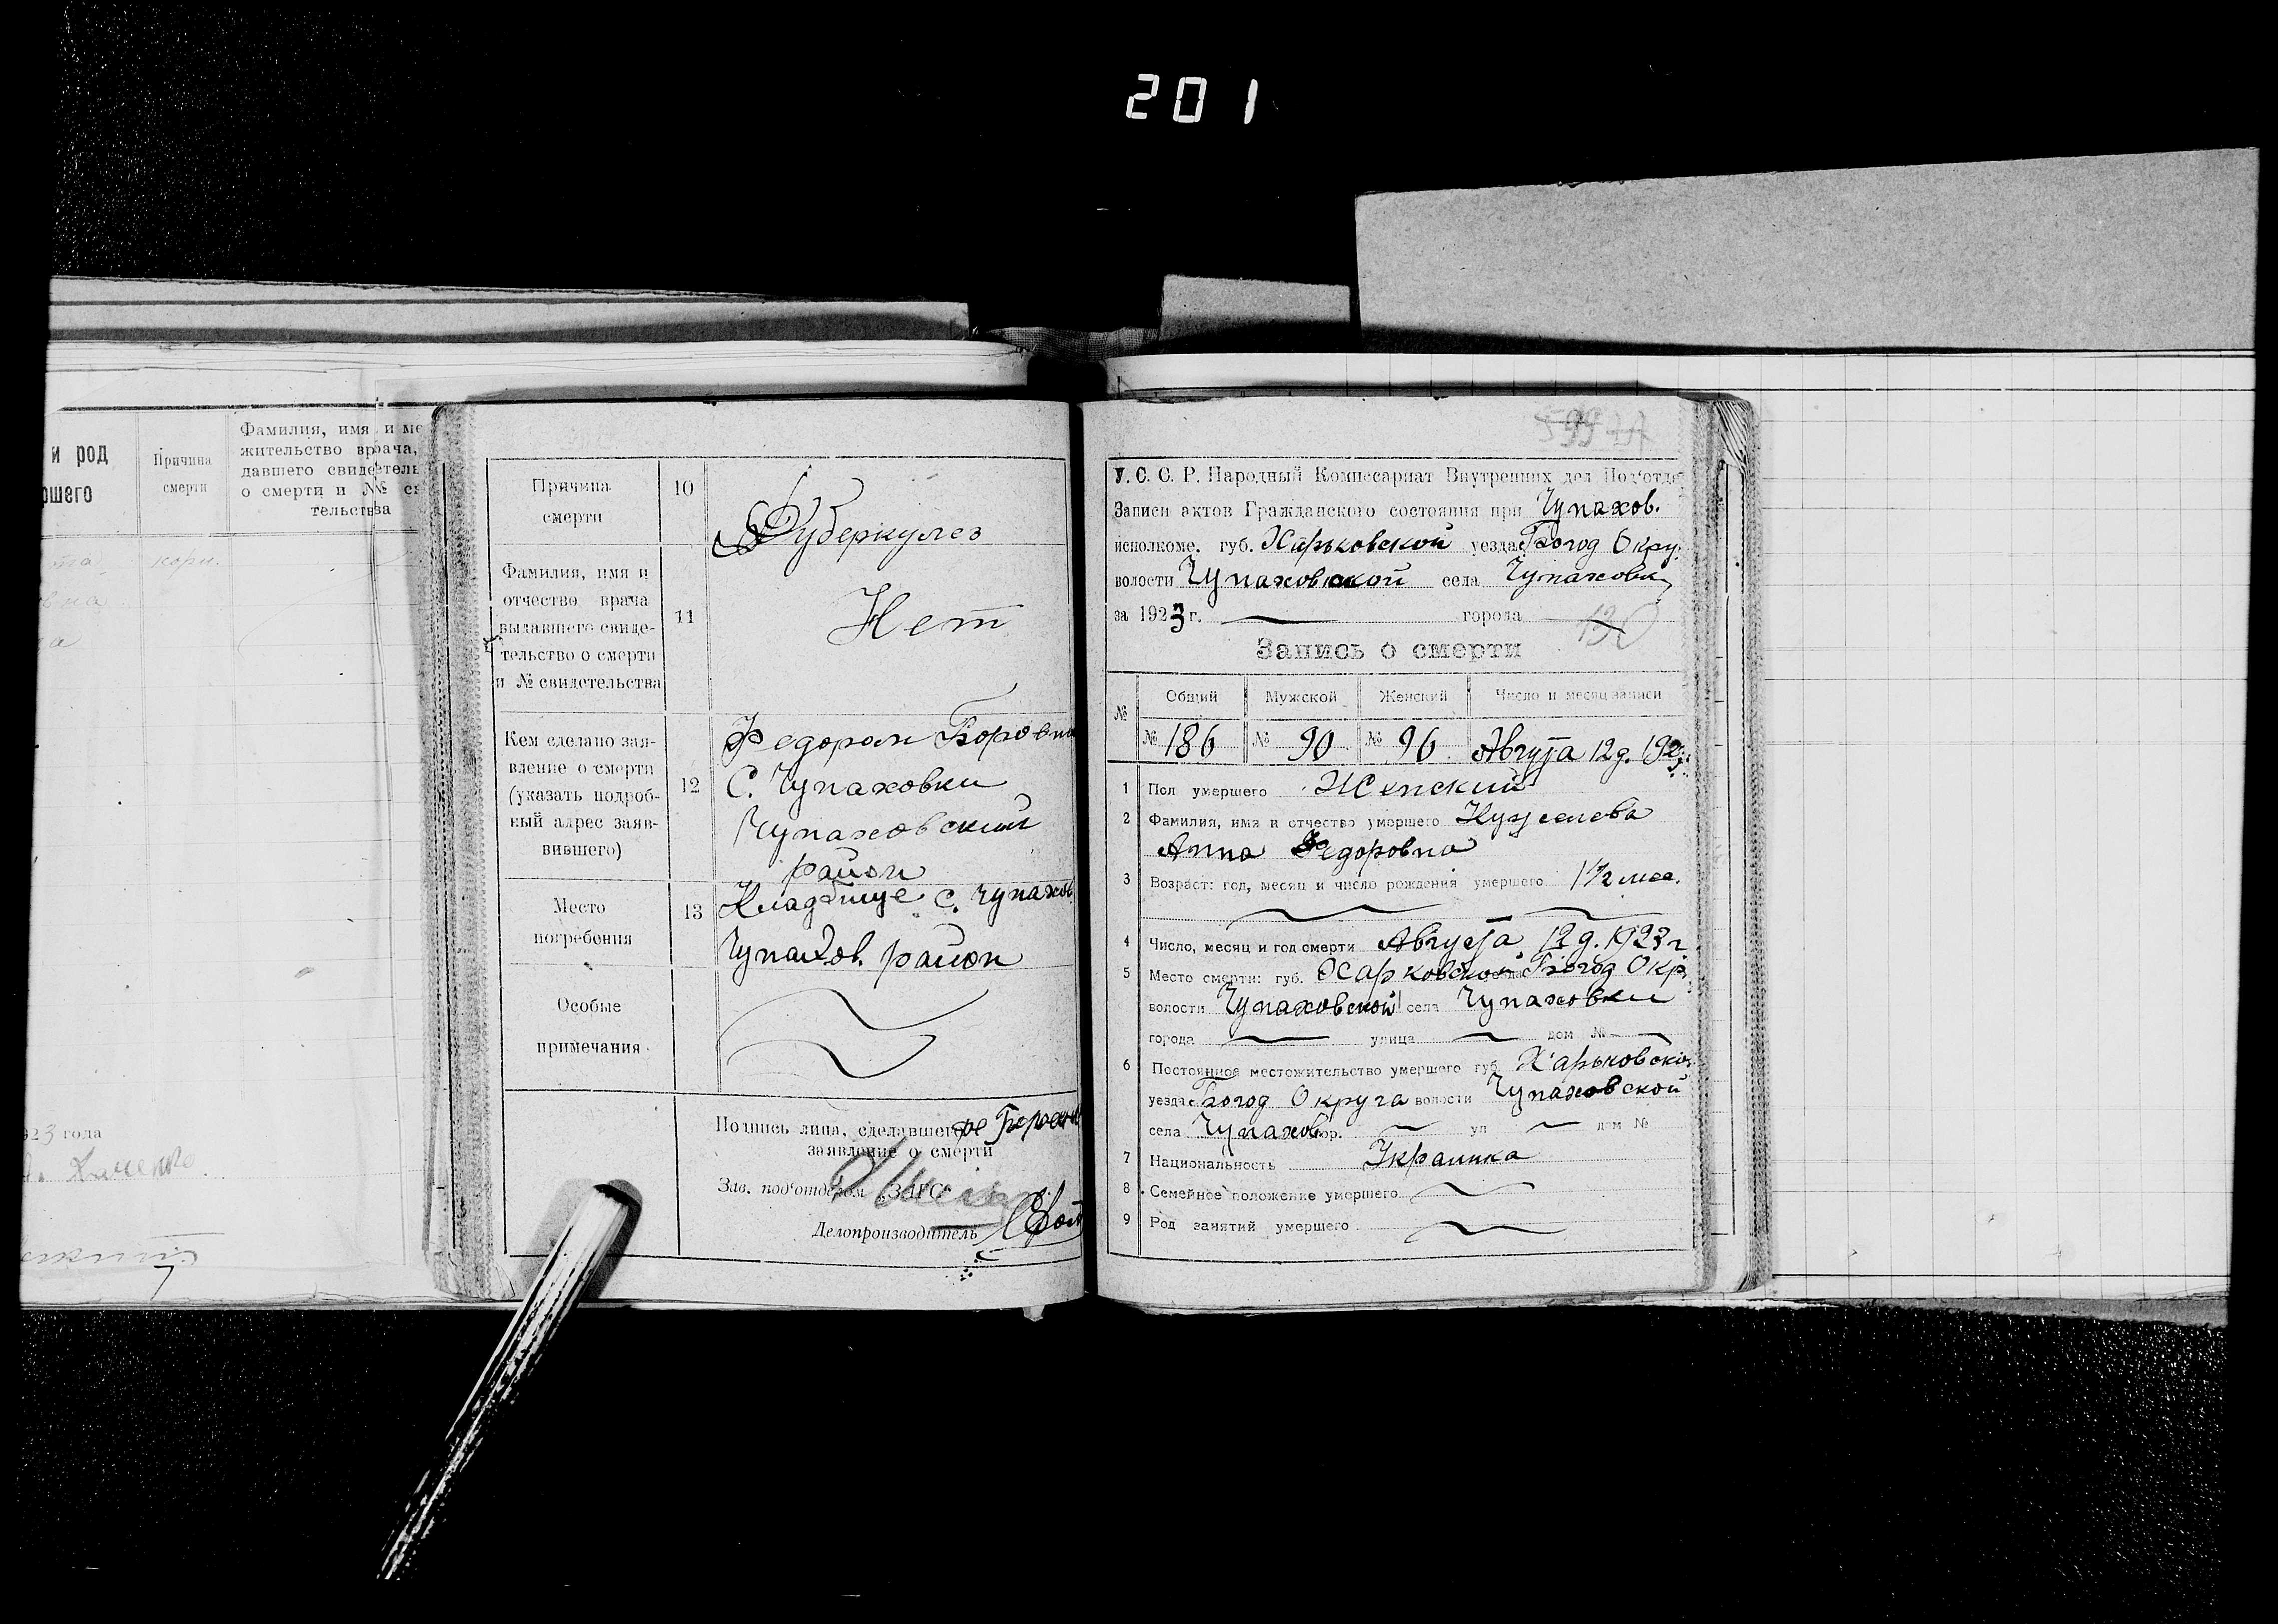 201
и род
Причина
смерти
Фамилия, имя и
жительство врача,
давшего свидетель
о смерти и №
тельства
корн.
923 года
Причина
смерти
10
Туберкулез
Фамилия, имя и
отчество врача
выдавшего свиде-
тельство о смерти
и № свидетельства
11
Нет
Кем сделано зая-
вление о смерти
(указать подроб-
ный адрес заяв-
вившего)
12
Федоран
С. Чупаховки
Чупаховский
район
Место
погребения
13
Кладбище с. Чупахов
Чупахов. район
Особые
примечания
Подпись лица, сделавшего
заявление о смерти
Зав. под'отделом ЗАГС
Делопроизводитель
У. С. С. Р. Народный Комиссариат Внутренних дел Под'отде
Записи актов Гражданского состояния при Чупахов.
исполкоме. губ. Харьковской уезда Богод Окру.
волости Чупаховской села Чупаховки
за 1923 г. города
130
Запись о смерти
№ Общий Мужской Женский Число и месяц записи
№ 186 № 90 № 96 Августа 12 д. 1923
1 Пол умершего Женский
2 Фамилия, имя и отчество умершего
Анна Федоровна
3 Возраст: год, месяц и число рождения умершего 1 1/2 мес.
4 Число, месяц и год смерти Августа 12 д. 1923 г.
5 Место смерти: губ. Харковской Богод Окр.
волости Чупаховской села Чупаховки
города улица дом №
6 Постоянное местожительство умершего губ. Харьковской
уезда Богод Округа волости Чупаховской
села Чупахов гор. ул дом №
7 Национальность Украинка
8 Семейное положение умершего
9 Род занятий умершего